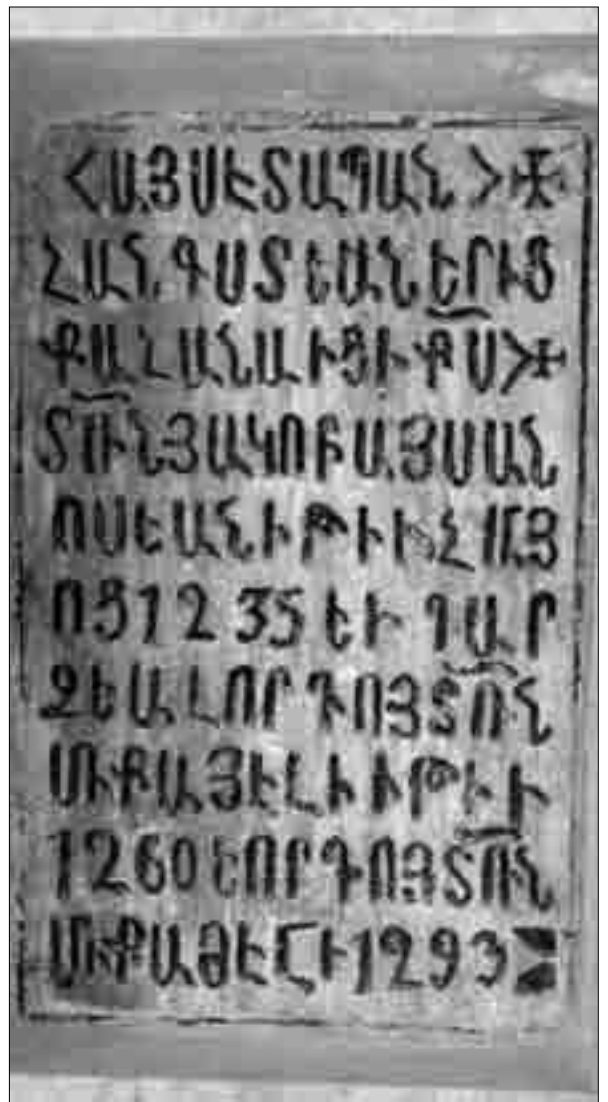 <ԱՅՍԷՏԱՊԱՆ>✠
ՀԱՆԳՍՏԵԱՆԵՐԻՑ
ՔԱՀԱՆԱԻՑԻՔՍ>✠
ՏՌՆՅԱԿՈԲԱՅՍԱՆ
ՈՍԵԱՆԻԹԻՒՀԱՅ
ՈՑ1235ԵՒԴԱՐ
ՁԵԱԼՈՐԴՈՅՏՌՆ
ՄԻՔԱՅԷԼԻԻԹԻՒ
1260ԵՈՐԴՈՅՏՌՆ
ՄԻՔԱՅԷԼԻ1293